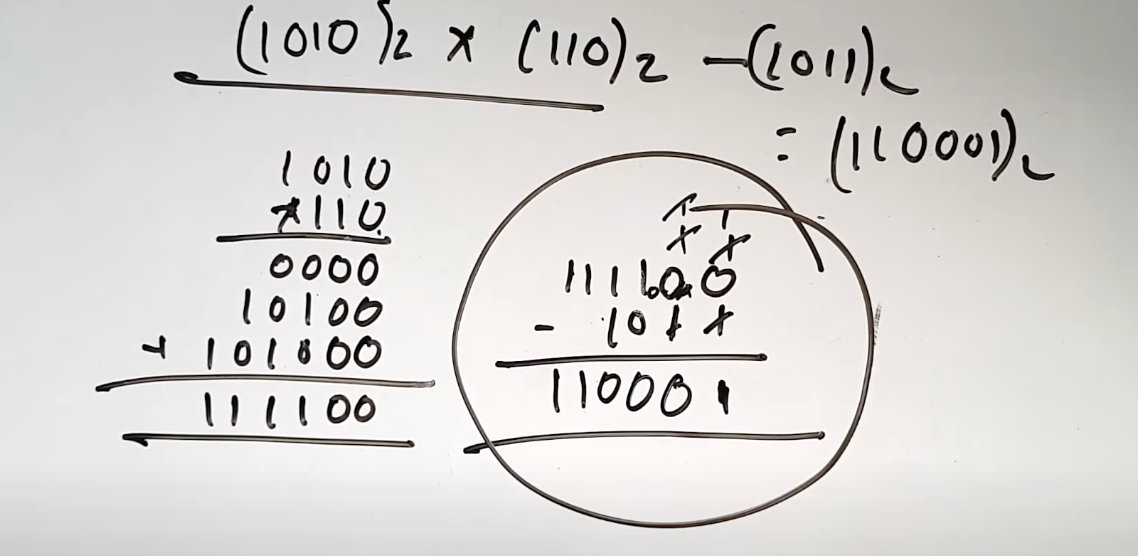 (1010)2 × (110)2 - (1011)2
= (110001)2
1010
×110
0000
10100
+ 101000
111100
111100
- 1011
110001